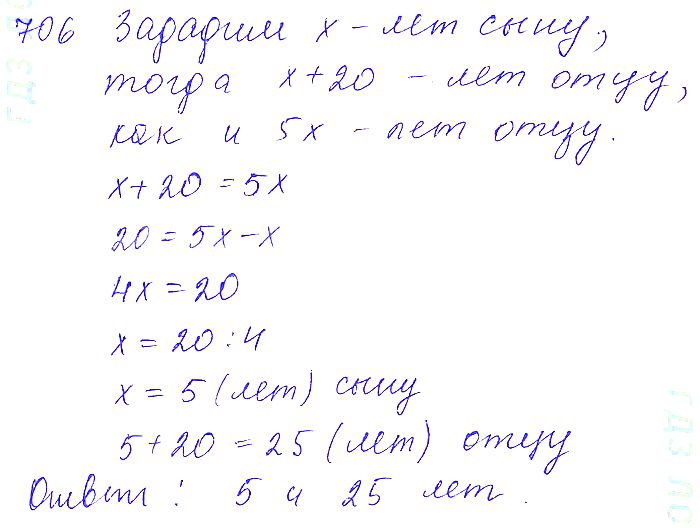 706 Зададим x - лет сыну,
тогда x+20 - лет отцу,
как и 5x - лет отцу.
x+20=5x
20=5x-x
4x=20
x=20:4
x=5(лет) сыну
5+20=25(лет) отцу
Ответ: 5 и 25 лет.